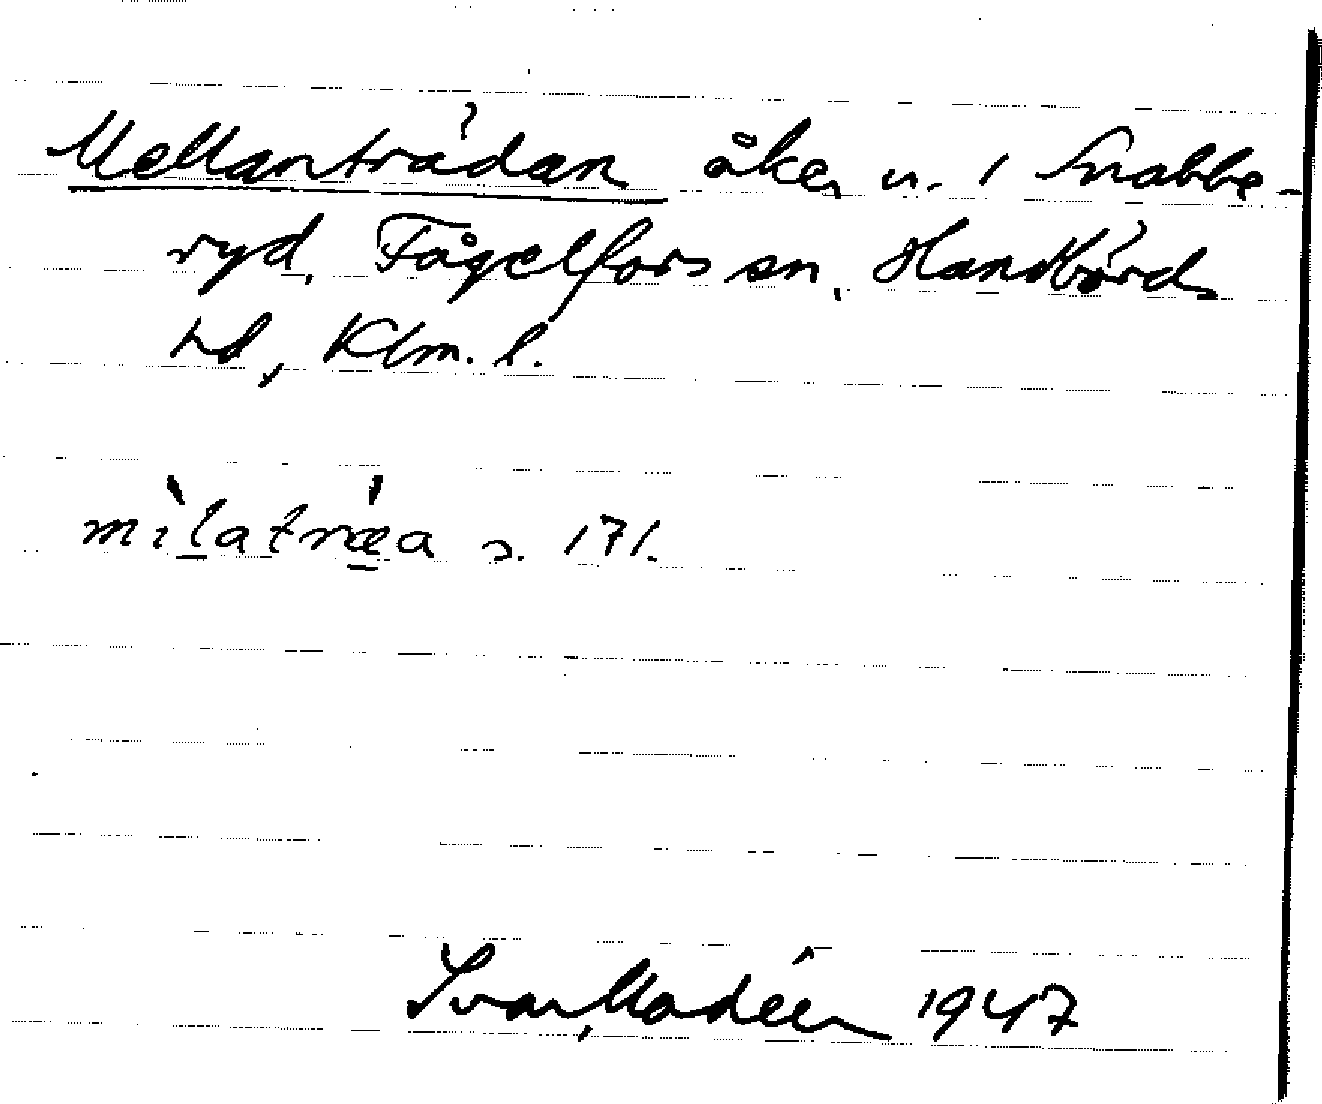 Mellanträdan åker u. 1 Snabbe-
ryd, Fågelfors sn, Handbörds
hd, Klm. l.
mìlatræ̀a s. 171.
Ivar Modéer 1947